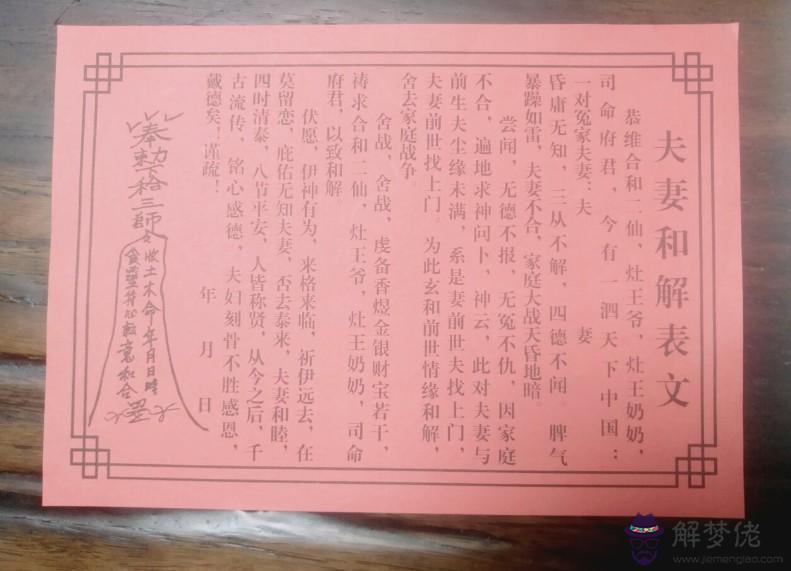 夫妻和解表文
恭维合和二仙，灶王爷，灶王奶奶，
司命府君，今有一泗天下中国：
一对冤家夫妻：夫　妻
昏庸无知，三从不解，四德不闻。脾气
暴躁如雷，夫妻不合，家庭大战天昏地暗。
尝闻，无德不报，无冤不仇，因家庭
不合，遍地求神问卜，神云，此对夫妻与
前生夫尘缘未满，系是妻前世夫找上门，
夫妻前世找上门。为此玄和前世情缘和解，
舍去家庭战争。
舍战，舍战，虔备香煜金银财宝若干，
祷求合和二仙，灶王爷，灶王奶奶，司命
府君，以致和解。
伏愿，伊神有为，来格来临，祈伊远去，在
莫留恋，庇佑无知夫妻，否去泰来，夫妻和睦，
四时清泰，八节平安，人皆称贤，从今之后，千
古流传，铭心感德，夫妇刻骨不胜感恩，
戴德矣！谨疏！
年　月　日
奉勅 三師
收土木命年月日時
和合
解梦佬
www.jiemenglao.com